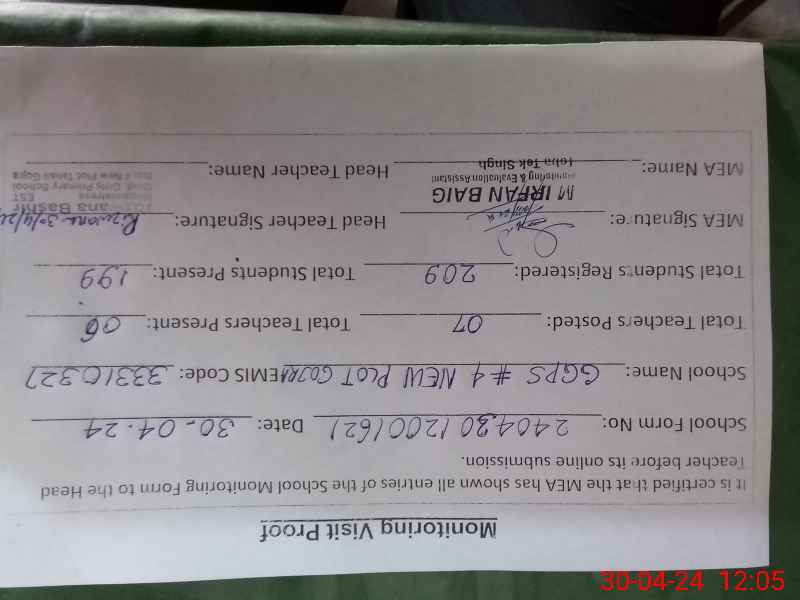 Monitoring Visit Proof
It is certified that the MEA has shown all entries of the School Monitoring Form to the Head
Teacher before its online submission.
School Form No: 24043012001621 Date: 30-04-24
School Name: GGPS #4 NEW PLOT GOJRA EMIS Code: 33310327
Total Teachers Posted: 07 Total Teachers Present: 06
Total Students Registered: 209 Total Students Present: 199
MEA Signature: Head Teacher Signature: Rizwana 30/4/24
M IRFAN BAIG
Monitoring & Evaluation Assistant
Toba Tek Singh
Bashir
Headmistress EST
Govt. Girls Primary School
No: 4 New Plot Tehsil Gojra
MEA Name: Head Teacher Name:
30-04-24 12:05